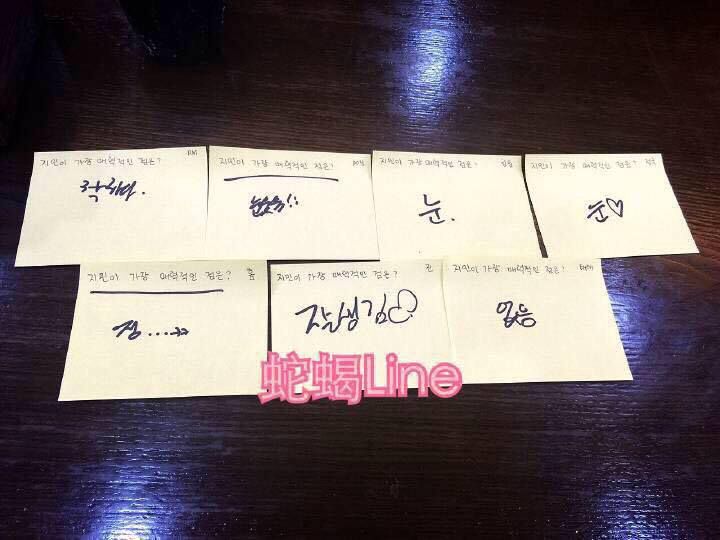 지민이 가장 매력적인 점은? RM
지민이 가장 매력적인 점은?
눈웃음!!
지민이 가장 매력적인 점은?
눈.
지민이 가장 매력적인 점은? 정국
눈♡
지민이 가장 매력적인 점은?
정....
지민이 가장 매력적인 점은? 진
잘생김
지민이 가장 매력적인 점은?
없음
蛇蝎Line